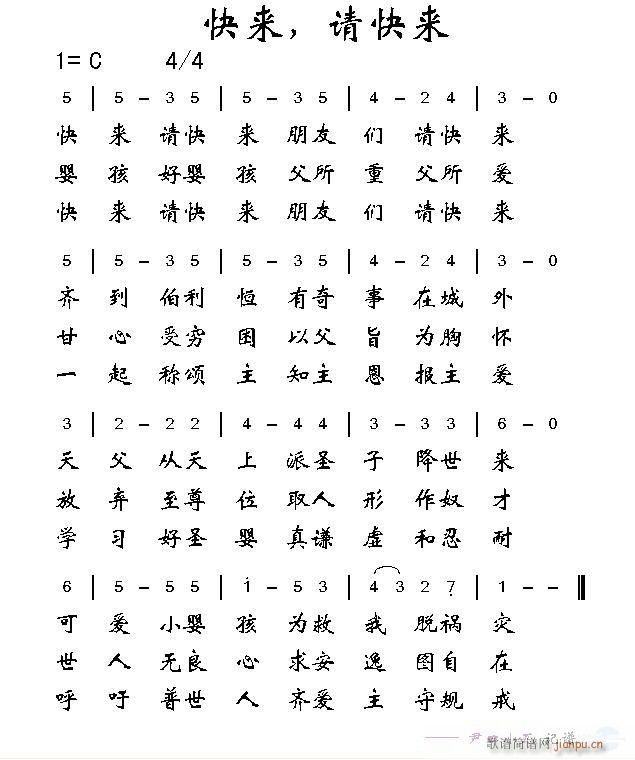 快来，请快来
1=C 4/4
5 | 5 - 3 5 | 5 - 3 5 | 4 - 2 4 | 3 - 0
快来请快来朋友们请快来
婴孩好婴孩父所重父所爱
快来请快来朋友们请快来
5 | 5 - 3 5 | 5 - 3 5 | 4 - 2 4 | 3 - 0
齐到伯利恒有奇事在城外
甘心受穷困以父旨为胸怀
一起称颂主知主恩报主爱
3 | 2 - 2 2 | 4 - 4 4 | 3 - 3 3 | 6 - 0
天父从天上派圣子降世来
放弃至尊位取人形作奴才
学习好圣婴真谦虚和忍耐
6 | 5 - 5 5 | i - 5 3 | 4 3 2 7 | 1 - - ‖
可爱小婴孩为救我脱祸灾
世人无良心求安逸图自在
呼吁普世人齐爱主守规戒
记谱
歌谱简谱网
jianpu.cn